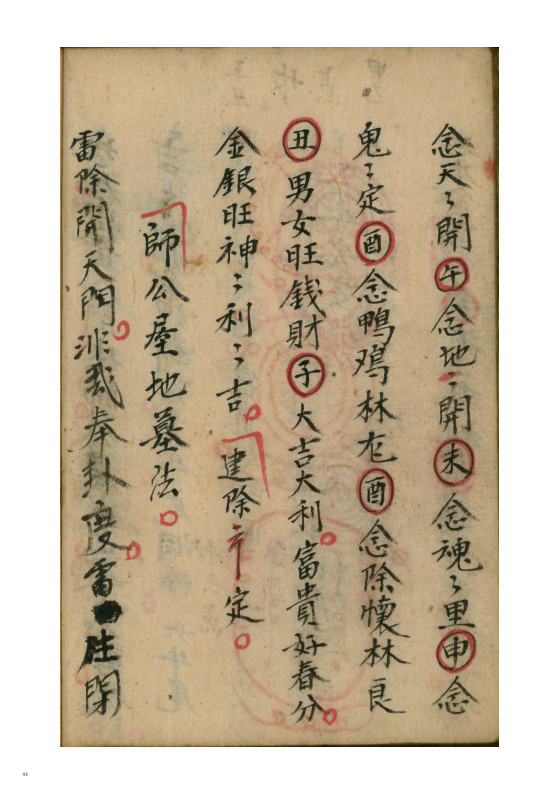 念天〻開午念地〻開未念魂〻里申念
鬼〻定酉念鴨鸡林尨酉念除懷林良
丑男女旺銭財子大吉大利富貴好春分
金銀旺神〻利〻吉建除 定
師公屋地墓法
雷除開天門 奉卦度雷 閉
44